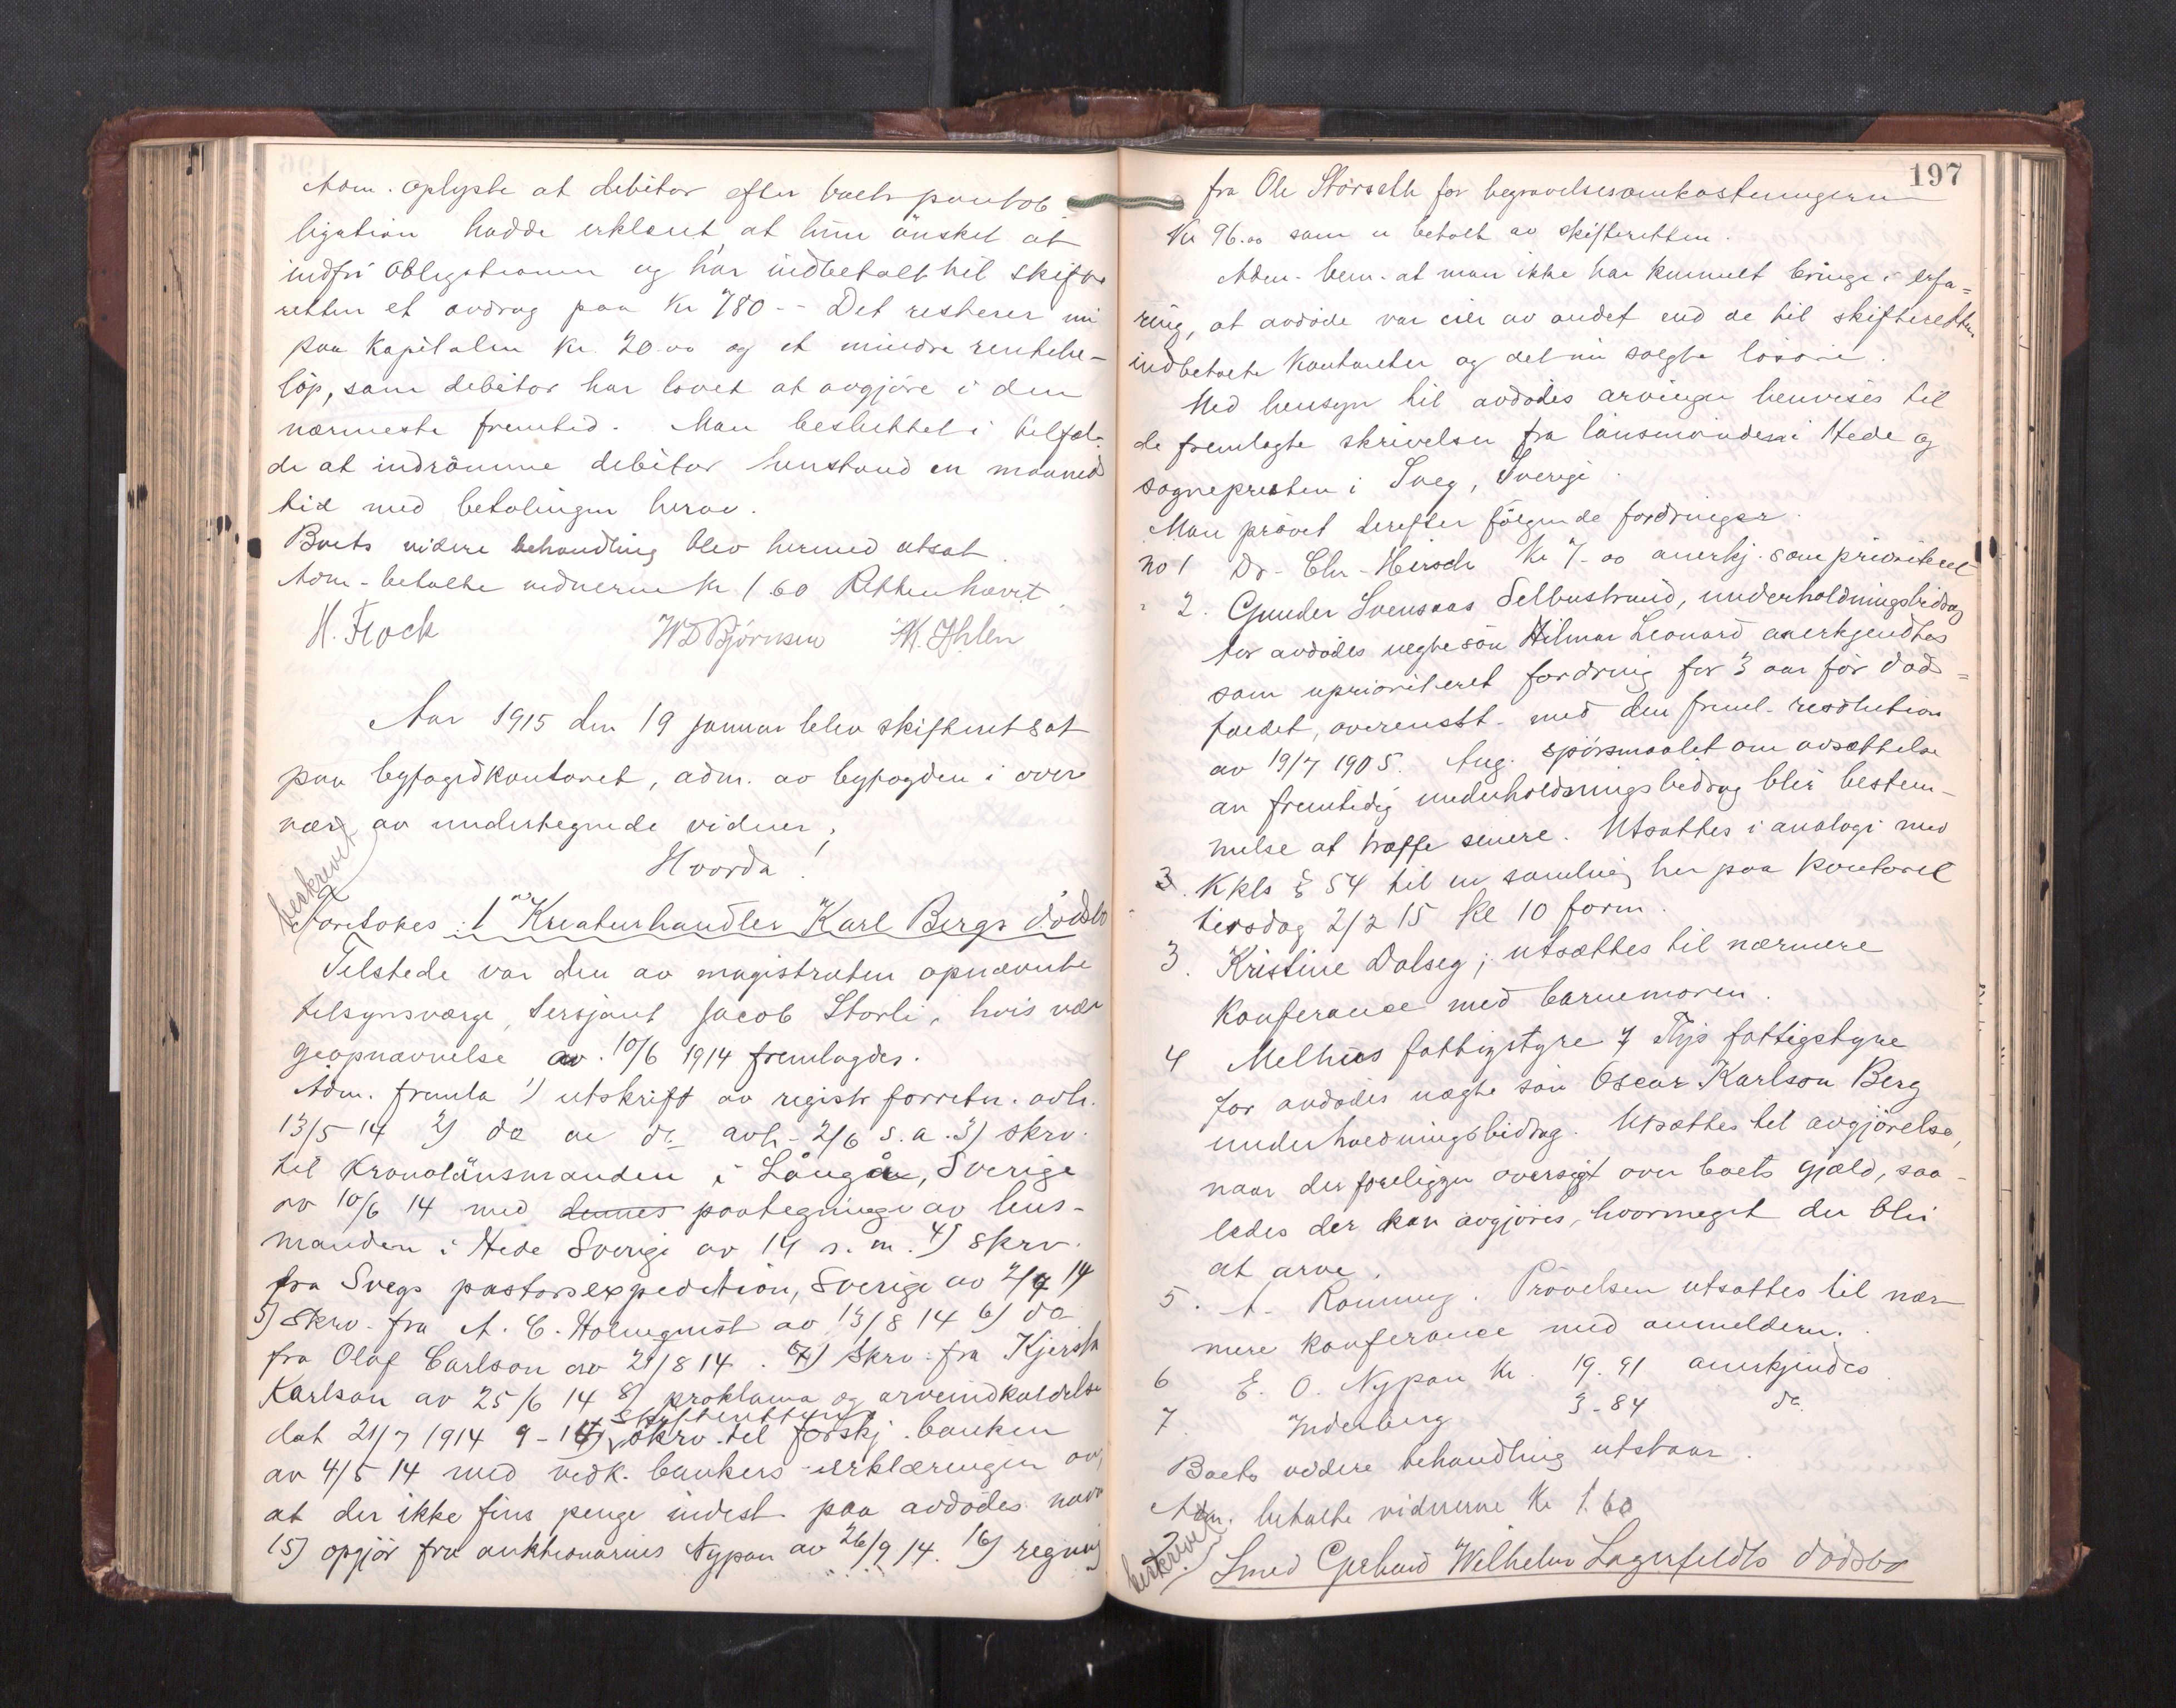 Adm. oplyste at debitor efter boets pantob
ligation hadde erklæret at hun önsket at
indfri obligationen og har indbetalt til skifte
retten et avdrag paa Kr 780 - Det resterer nu
paa Kapitalen Kr. 20.00 og et mindre rentebe-
löp, som debitor har lovet at avgjöre i den
nærmeste fremtid. Man besluttet i tilfæl-
de at indrömme debitor henstand en maaned
tid med betalingen herav.
Boets videre behandling blev hermed utsat.
Adm. betalte vidnerne Kr 1.60 Retten hævet.
H. Flock W D Bjørnsen M. Ihlen
Aar 1915 den 19 januar blev skifteret sat
paa byfogdkontoret, adm. av byfogden i over
vær av undertegnede vidner,
Hvorda!
beskrevet
Foretokes: 1 Kreaturhandler Karl Bergs dödsbo
Tilstede var den av magistraten opnævnte
tilsynsværge, Sersjant Jacob Storli, hvis vær
geopnævnelse av 10/6 1914 fremlagdes.
Adm. fremla 1) utskrift av registr forretn. avh.
13/5 14 2) do av do avh. 2/6 s.a. 3) skrv.
til Kronolänsmanden i Långå, Sverige
av 10/6 14 med dennes paategninge av lens-
manden i Hede Sverige av 14 s. m. 4) skrv.
fra Svegs pastorsexpedition, Sverige av 2/7 14
5) Skrv. fra A. C. Holmqvist av 13/8 14 6) do
fra Olof Carlson av 21/8 14. 7) Skrv. fra Kjersti
Karlson av 25/6 14 8) proklama og arveindkaldelse
dat 21/7 1914 9-14) skifterettens skrv. til forskj. banken
av 4/5 14 med vedk. bankers erklæringen av,
at der ikke fins penge indest. paa avdödes navn
15) opgjör fra auktionarius Nypan av 26/9 14. 16) regning
197
fra Ole Störseth for begravelsesomkostningerne
Kr 96.00 som er betalt av skifteretten.
Adm. bem. at man ikke har kunnet bringe i erfa=
ring, at avdöde var eier av andet end de til skifteretten
indbetalte Kontanter og det nu solgte lösöre.
Med hensyn til avdödes arvinger henvises til
de fremlagte skrivelser fra länsmanden i Hede og
sognepresten i Sveg, Sverige.
Man prövet derefter fölgende fordringer.
no 1 Dr. Chr. Hirsch Kr 7.00 anerkj. som prioriteret
" 2. Gunder Svensaas Selbustrand, underholdningsbidrag
for avdödes uegte sön Hilmar Leonard anerkjendtes
som uprioriteret fordring for 3 aar för döds=
faldet, overensst. med den freml. resolution
av 19/7 1905. Ang. spörsmaalet om avsættelse
av fremtidig underholdningsbidrag blir bestem-
melse at træffe senere. Utsattes i analogi med
3. Kkls § 54 til en samling her paa Kontoret
tirsdag 2/2 15 kl 10 form.
3. Kristine Dalseg; utsættes til nærmere
Konferance med barnemoren.
4 Melhus fattigstyre / Flys fattigstyre
for avdödes uegte sön Oscar Karlson Berg
underholdningsbidrag. Utsættes til avgjörelse,
naar der foreligger oversigt over boets gjæld, saa-
ledes der kan avgjöres, hvormeget der blir
at arve.
5. A. Ronning. Prövelsen utsattes til nær-
mere konferance med anmelderen.
6 E. O. Nypan Kr. 19.91 anerkjendes
7. Inderberg 3-84 do.
Boets videre behandling utstaar.
Adm. betalte vidnerne Kr 1.60
beskrevet
2. Smed Gerhard Wilhelm Lagerfeldts dödsbo